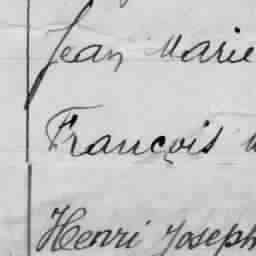 Jean Marie
François
Henri Joseph